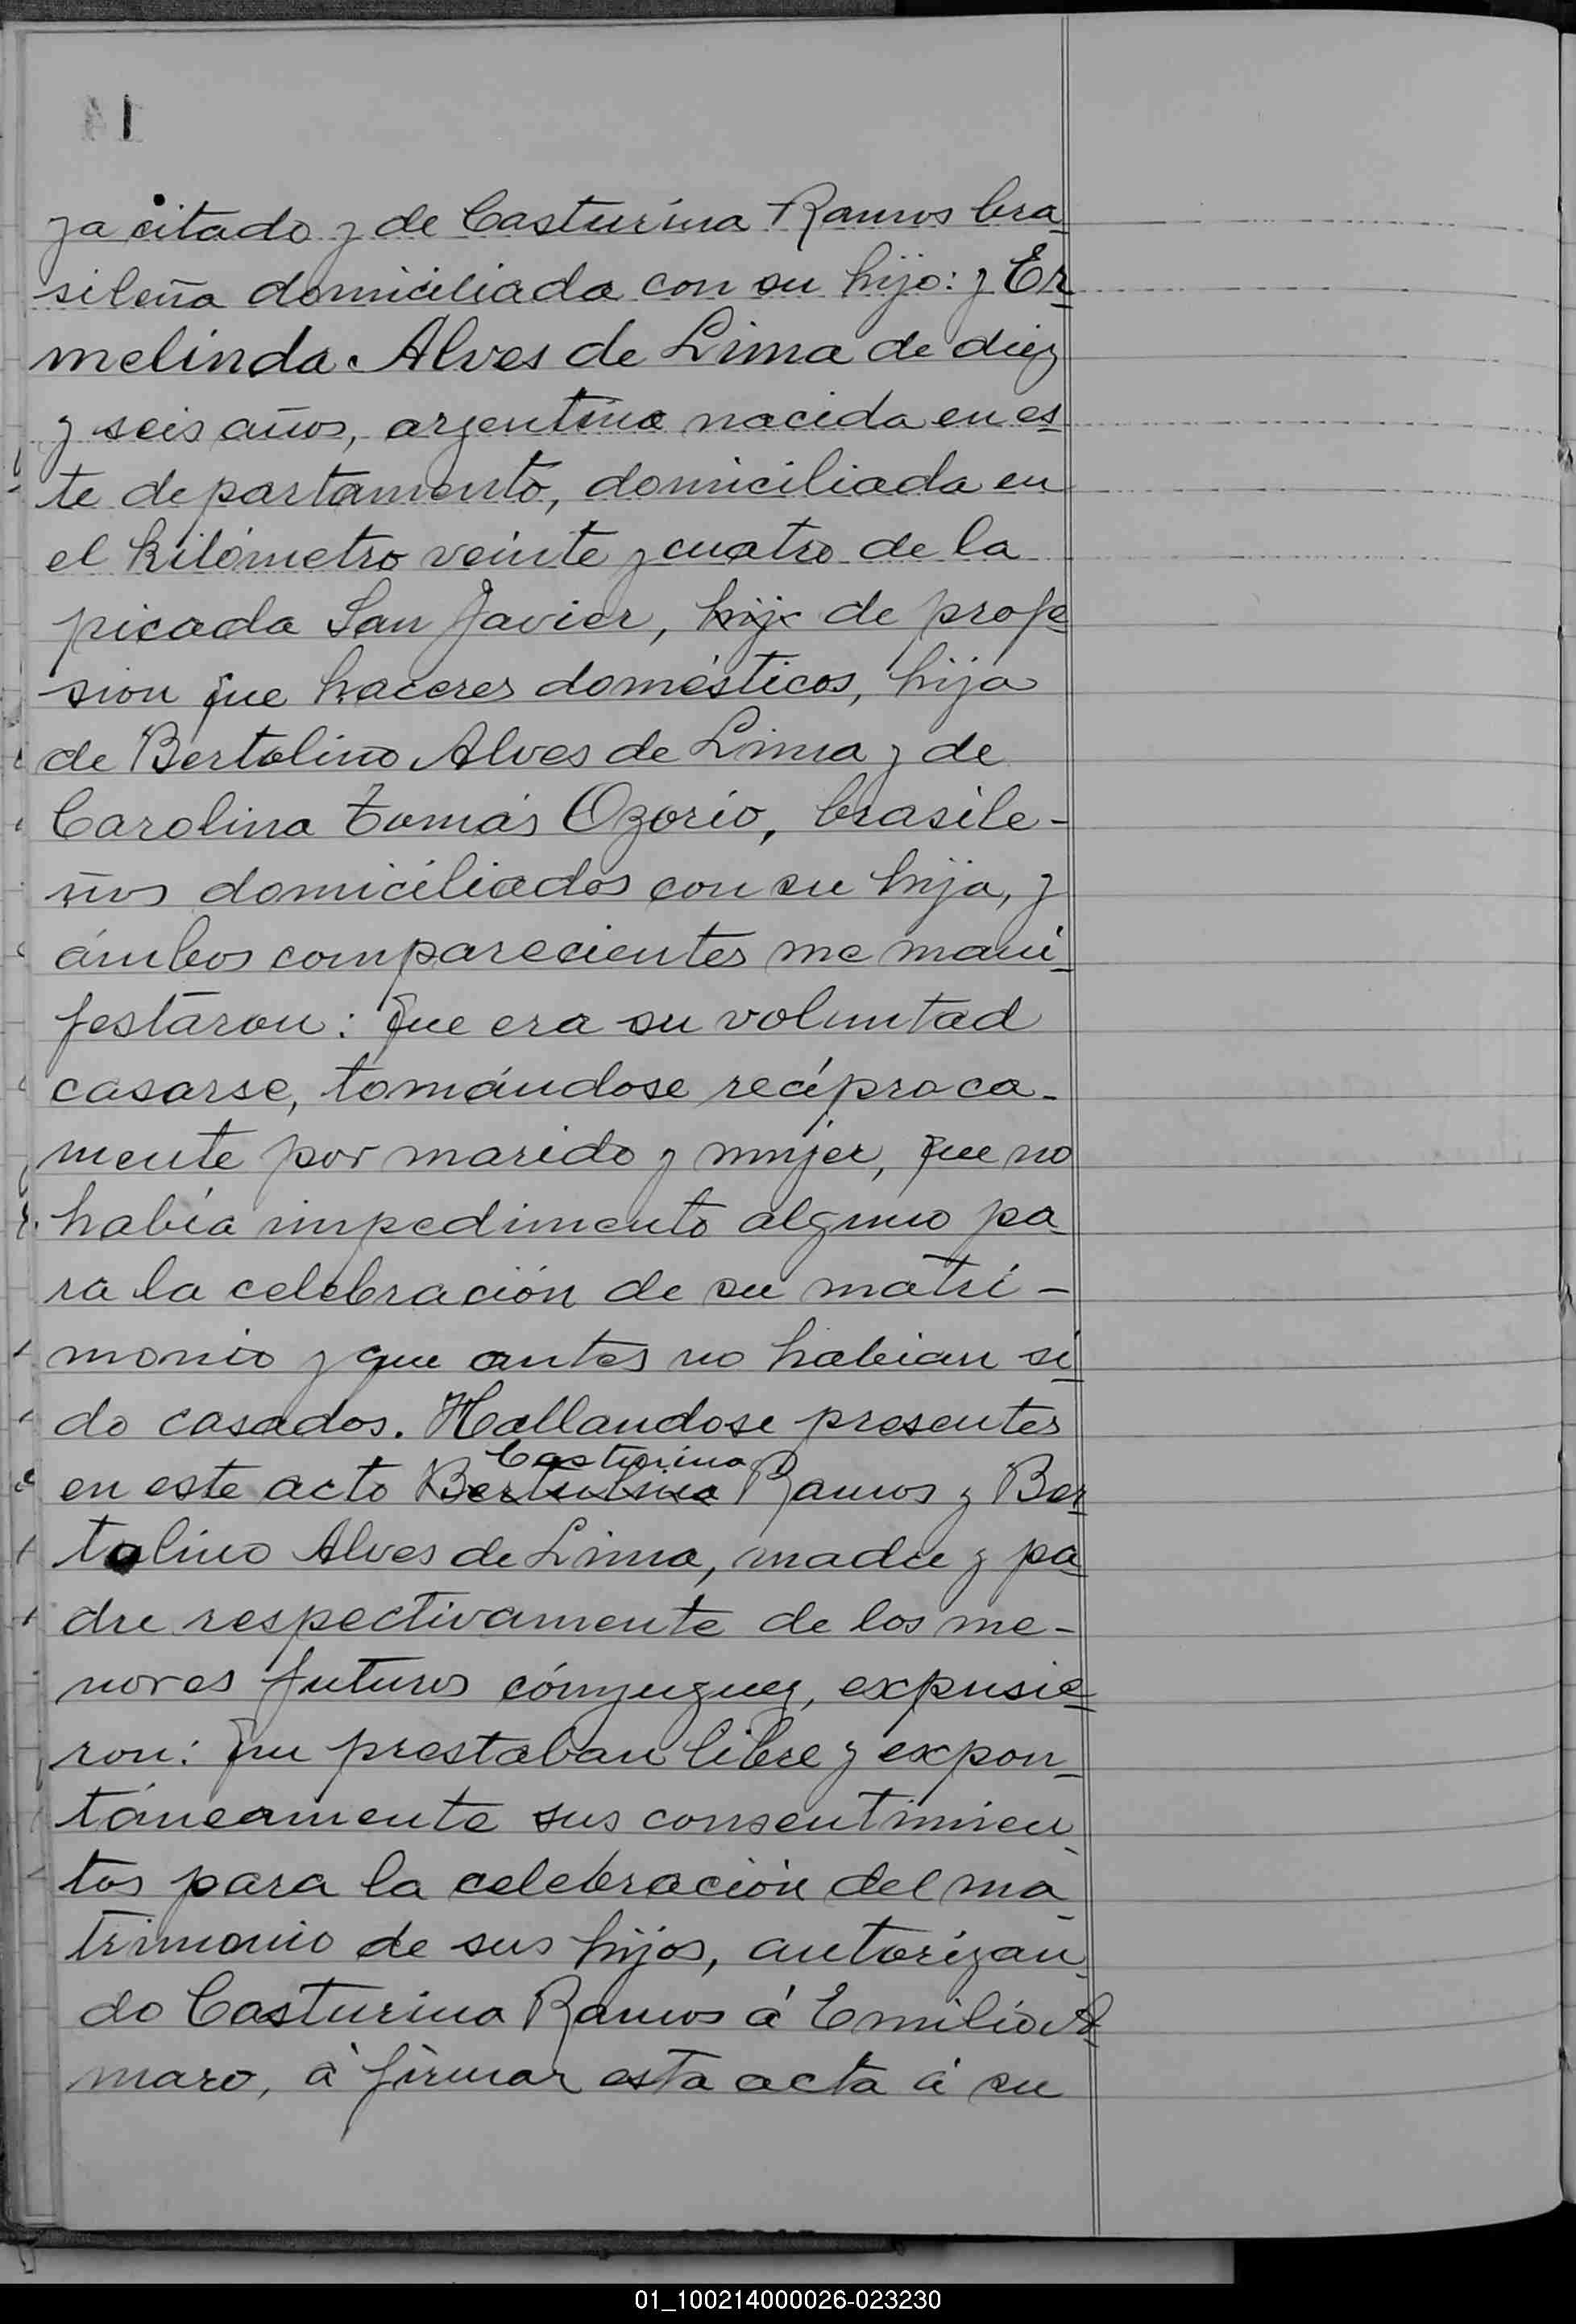 ya citado y de Casturina Ramos bra
sileña domiciliada con su hijo: y Er
melinda Alves de Lima de diez
y seis años, argentina nacida en es
te departamento, domiciliada en
el kilómetro veinte y cuatro de la
picada San Javier, hija de profe
sion que haceres domésticos, hija
de Bertolino Alves de Lima y de
Carolina Tomás Ozorio, brasile-
ños domiciliados con su hija, y
ámbos comparecientes me mani
festaron: Que era su voluntad
casarse, tomándose recíproca-
mente por marido y mujer, que no
había impedimento alguno pa
ra la celebración de su matri-
monio y que antes no habian si
do casados. Hallandose presentes
Casturina
en este acto Bertulina Ramos y Ber
tolino Alves de Lima, madre y pa
dre respectivamente de los me-
nores futuros cónyuguez, expusie
ron: Que prestaban libre y expon
táneamente sus consentimien
tos para la celebración del ma
trimonio de sus hijos, autorizan
do Casturina Ramos á Emilio A
maro, á firmar esta acta á su
01_100214000026-023230